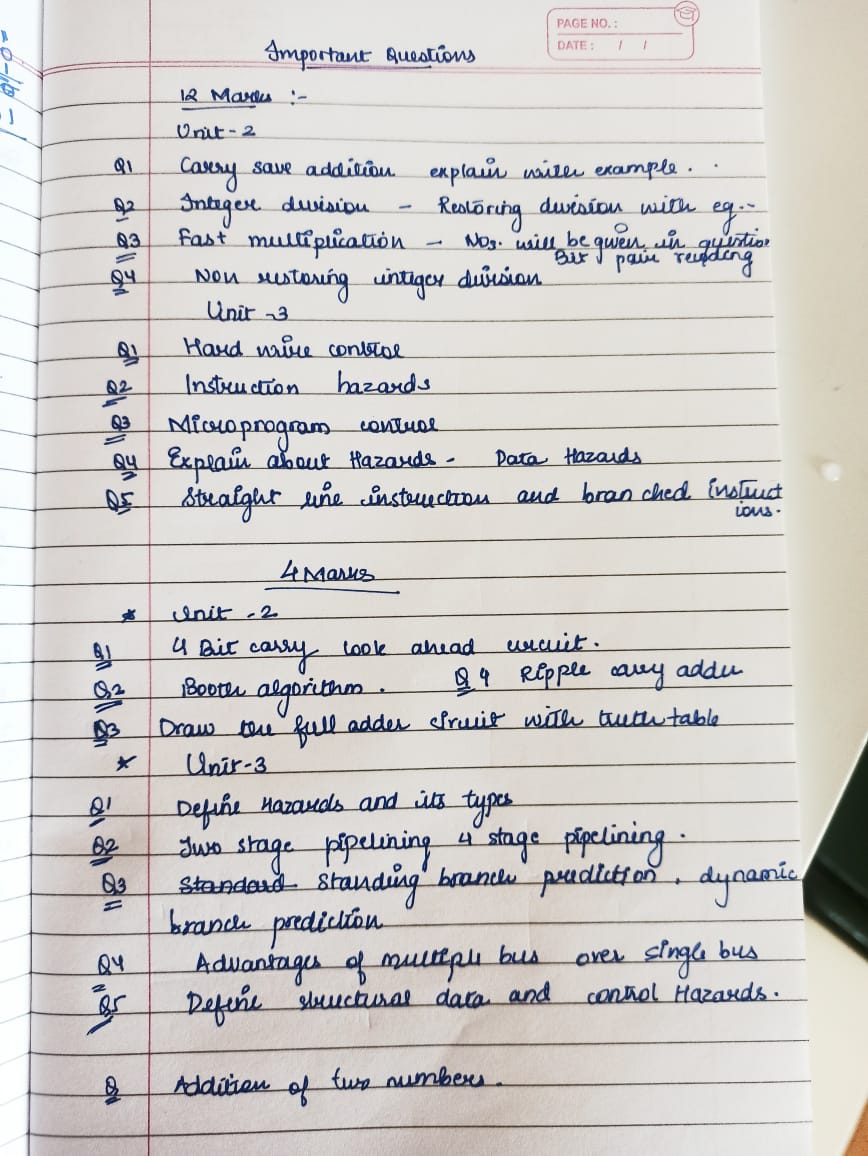 PAGE NO.:
DATE: / /
Important Questions
12 Marks :-
Unit - 2
Q1 Carry save addition explain with example.
Q2 Integer division - Restoring division with eg.-
Q3 Fast multiplication - Nos. will be given in question
Bit pair recoding
Q4 Non restoring intiger division
Unit - 3
Q1 Hard wire control
Q2 Instruction hazards
Q3 Microprogram control
Q4 Explain about Hazards - Data Hazards
Q5 Straight line instruction and branched instruct
ions.
4 Marks
* Unit - 2
Q1 4 Bit carry look ahead circuit.
Q2 Booth algorithm. Q4 Ripple carry adder
Q3 Draw the full adder circuit with truth table
* Unit-3
Q1 Define Hazards and its types
Q2 Two stage pipelining 4 stage pipelining.
Q3 Standard Standing branch prediction, dynamic
branch prediction
Q4 Advantages of multiple bus over single bus
Q5 Define structural data and control Hazards.
Q Addition of two numbers.